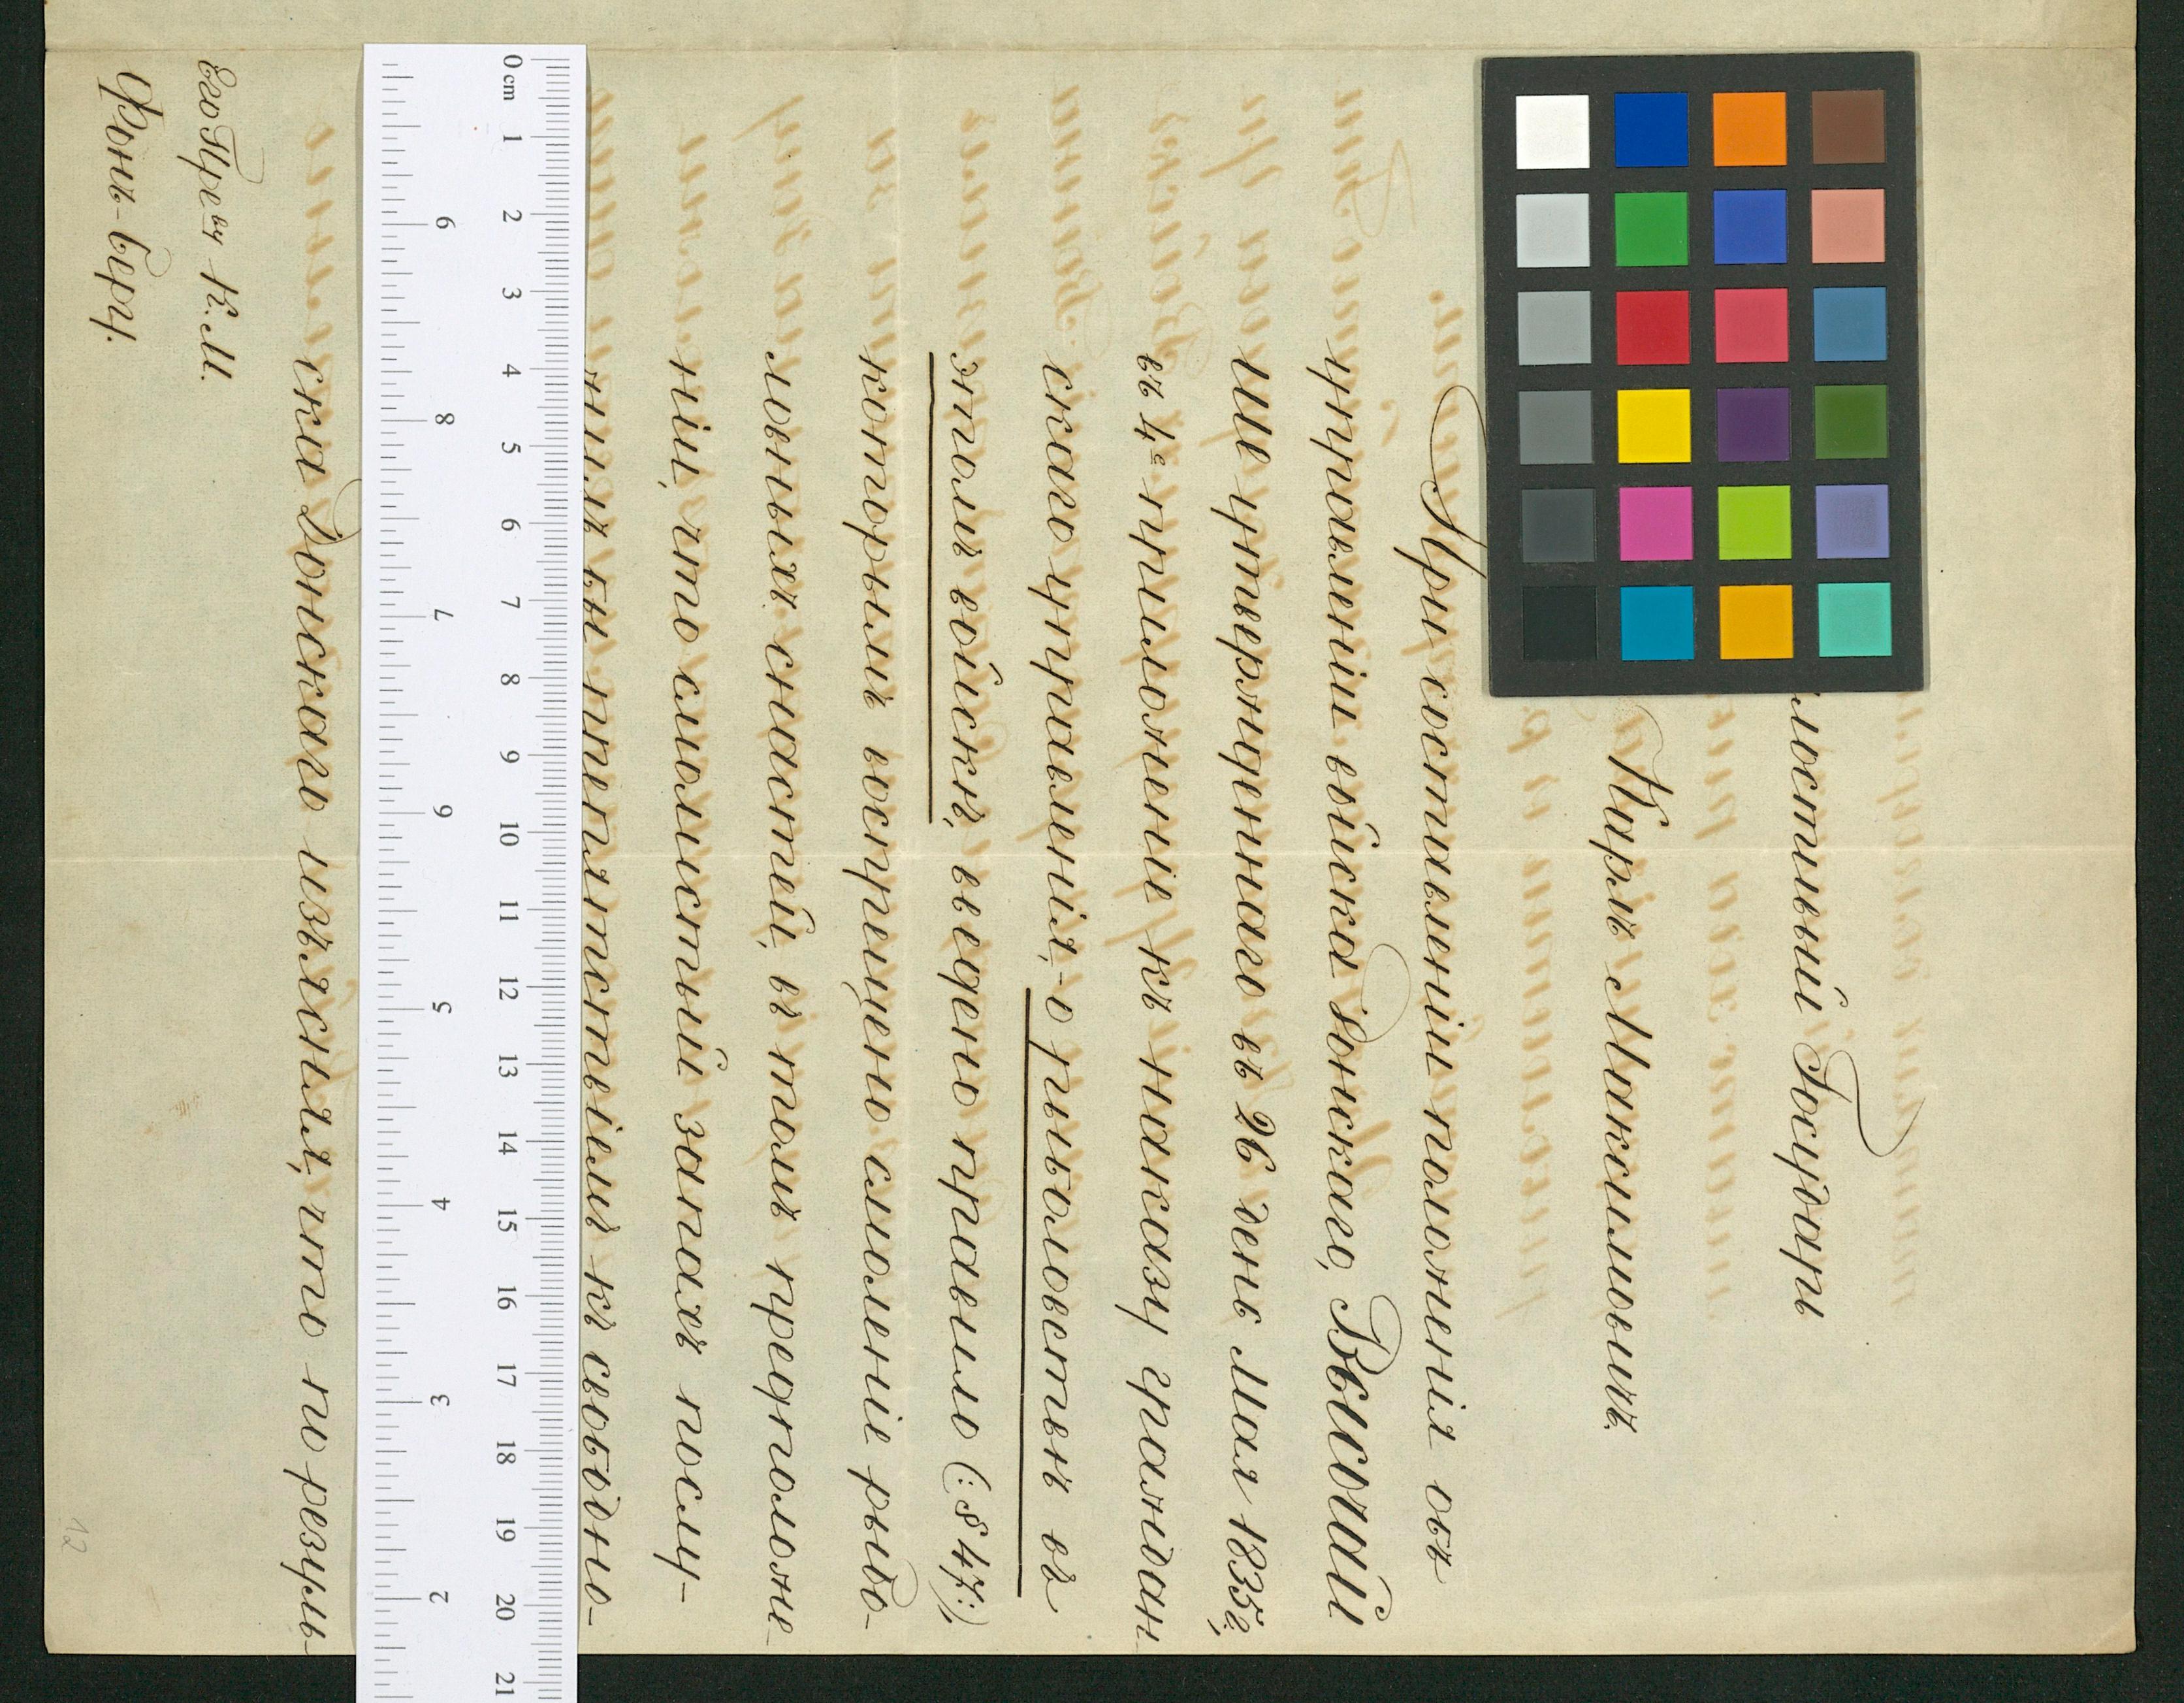 лостивый Государь
Карлъ Максимовичъ.
При составленіи положенія объ
управленіи войска Донскаго, Высочай
ше утвержденнаго въ 26 день Мая 1835 г.,
въ 4е приложеніе къ наказу граждан
скаго управленія,-о рыболовствѣ въ
этомъ войскѣ, введено правило (: § 47:),
которымъ воспрещено смоленіе рыбо-
ловныхъ снастей, въ томъ предположе
ніи, что смолистый запахъ послу-
житъ бы препятствіемъ къ свободно-
ска Донскаго изъяснилъ, что по резуль-
Его Прев у К. М.
Фонъ-Беру.
12
0 cm 1 2 3 4 5 6 7 8 9 10 11 12 13 14 15 16 17 18 19 20 21
9 8 7 6 5 4 3 2